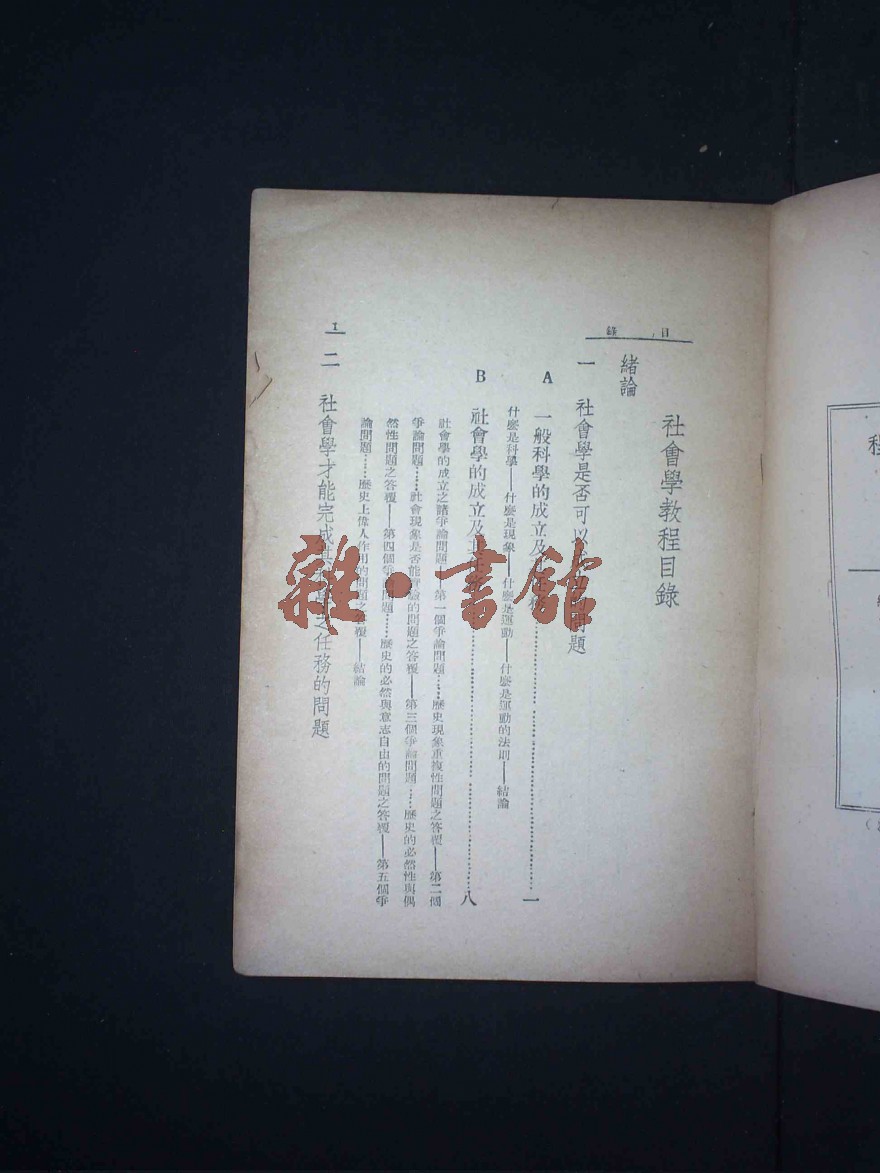 目錄
社會學教程目錄
緒論
一 社會學是否可以的問題
A 一般科學的成立及……一
什麼是科學——什麼是現象——什麼是運動——什麼是運動的法則——結論
B 社會學的成立及……八
社會學的成立之諸爭論問題——第一個爭論問題……歷史現象重複性問題之答覆——第二個
爭論問題……社會現象是否能的問題之答覆——第三個爭論問題……歷史的必然性與偶
然性問題之答覆——第四個爭問題……歷史的必然與意志自由的問題之答覆——第五個爭
論問題……歷史上偉人作用的問題之答覆——結論
二 社會學才能完成其之任務的問題
1
雜·書館
程